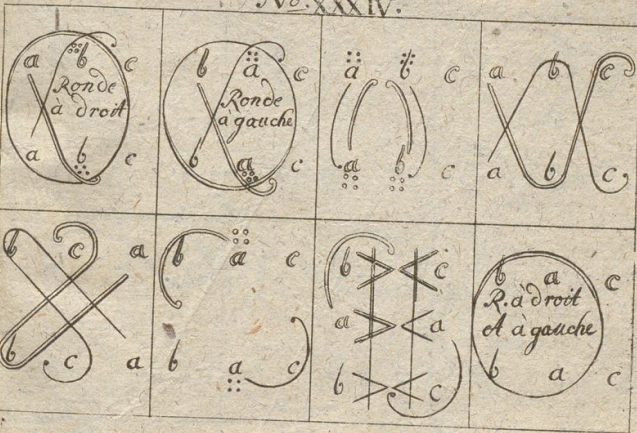 No. XXXIV.
a b c
Ronde
à droit
a b c
b a c
Ronde
a gauche
b a c
a b c
a b c
a b c
a b c
b c a
b c a
b a c
b a c
b c
a a
b c
b a c
R. à droit
et à gauche
b a c